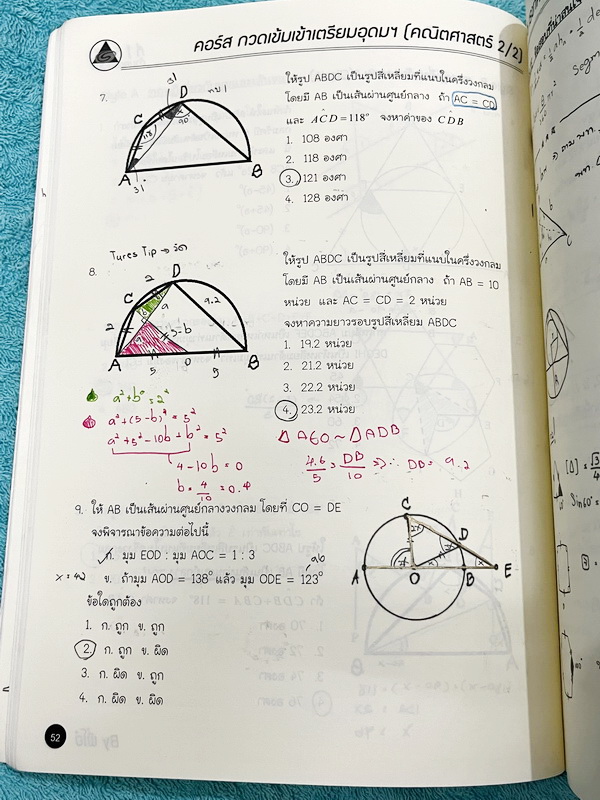 คอร์ส กวดเข้มเข้าเตรียมอุดมฯ (คณิตศาสตร์ 2/2)
7.
ให้รูป ABDC เป็นรูปสี่เหลี่ยมที่แนบในครึ่งวงกลม
โดยมี AB เป็นเส้นผ่านศูนย์กลาง ถ้า AC = CD
และ ACD = 118° จงหาค่าของ CDB
1. 108 องศา
2. 118 องศา
3. 121 องศา
4. 128 องศา
C D A B
118
90
31
8.
ให้รูป ABDC เป็นรูปสี่เหลี่ยมที่แนบในครึ่งวงกลม
โดยมี AB เป็นเส้นผ่านศูนย์กลาง ถ้า AB = 10
หน่วย และ AC = CD = 2 หน่วย
จงหาความยาวรอบรูปสี่เหลี่ยม ABDC
1. 19.2 หน่วย
2. 21.2 หน่วย
3. 22.2 หน่วย
4. 23.2 หน่วย
2 D
C
9.2
2
5-b
A 5 O 5 B
a² + (5-b)² = 5²
a² + 5² - 10b + b² = 5²
4 - 10b = 0
b = 4/10 = 0.4
4.6/5 = DB/10 ⇒ ∴ DB = 9.2
9. ให้ AB เป็นเส้นผ่านศูนย์กลางวงกลม โดยที่ CO = DE
จงพิจารณาข้อความต่อไปนี้
ก. มุม EOD : มุม AOC = 1 : 3
ข. ถ้ามุม AOD = 138° แล้ว มุม ODE = 123°
ข้อใดถูกต้อง
1. ก. ถูก ข. ถูก
2. ก. ถูก ข. ผิด
3. ก. ผิด ข. ถูก
4. ก. ผิด ข. ผิด
x = 42
96
C
2x
D
A O B E
52